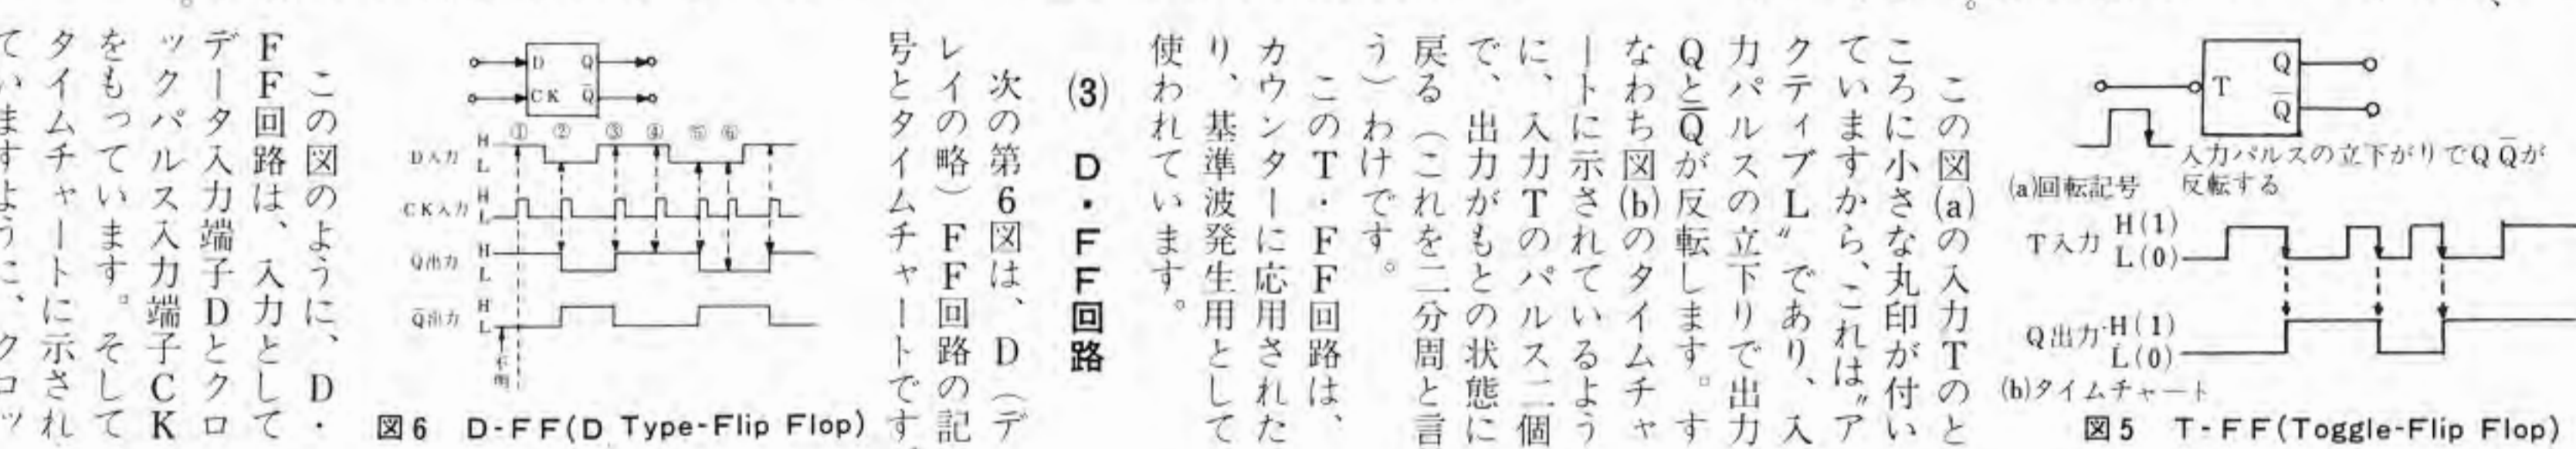 Q
T
Q̄
入力パルスの立下がりでQ Q̄が
反転する
(a)回転記号
T入力 H(1)
L(0)
Q出力 H(1)
L(0)
(b)タイムチャート
図5 T-FF(Toggle-Flip Flop)
この図(a)の入力Tのと
ころに小さな丸印が付い
ていますから、これは〝ア
クティブL〟であり、入
力パルスの立下りで出力
QとQ̄が反転します。す
なわち図(b)のタイムチャ
ートに示されているよう
に、入力Tのパルス二個
で、出力がもとの状態に
戻る(これを二分周と言
う)わけです。
このT・FF回路は、
カウンターに応用された
り、基準波発生用として
使われています。
(3) D・FF回路
次の第6図は、D(デ
レイの略)FF回路の記
号とタイムチャートです。
D Q
CK Q̄
① ② ③ ④ ⑤ ⑥
D入力 H
L
CK入力 H
L
Q出力 H
L
Q̄出力 H
L
不明
図6 D-FF(D Type-Flip Flop)
この図のように、D・
FF回路は、入力として
データ入力端子Dとクロ
ックパルス入力端子CK
をもっています。そして
タイムチャートに示され
ていますように、クロッ